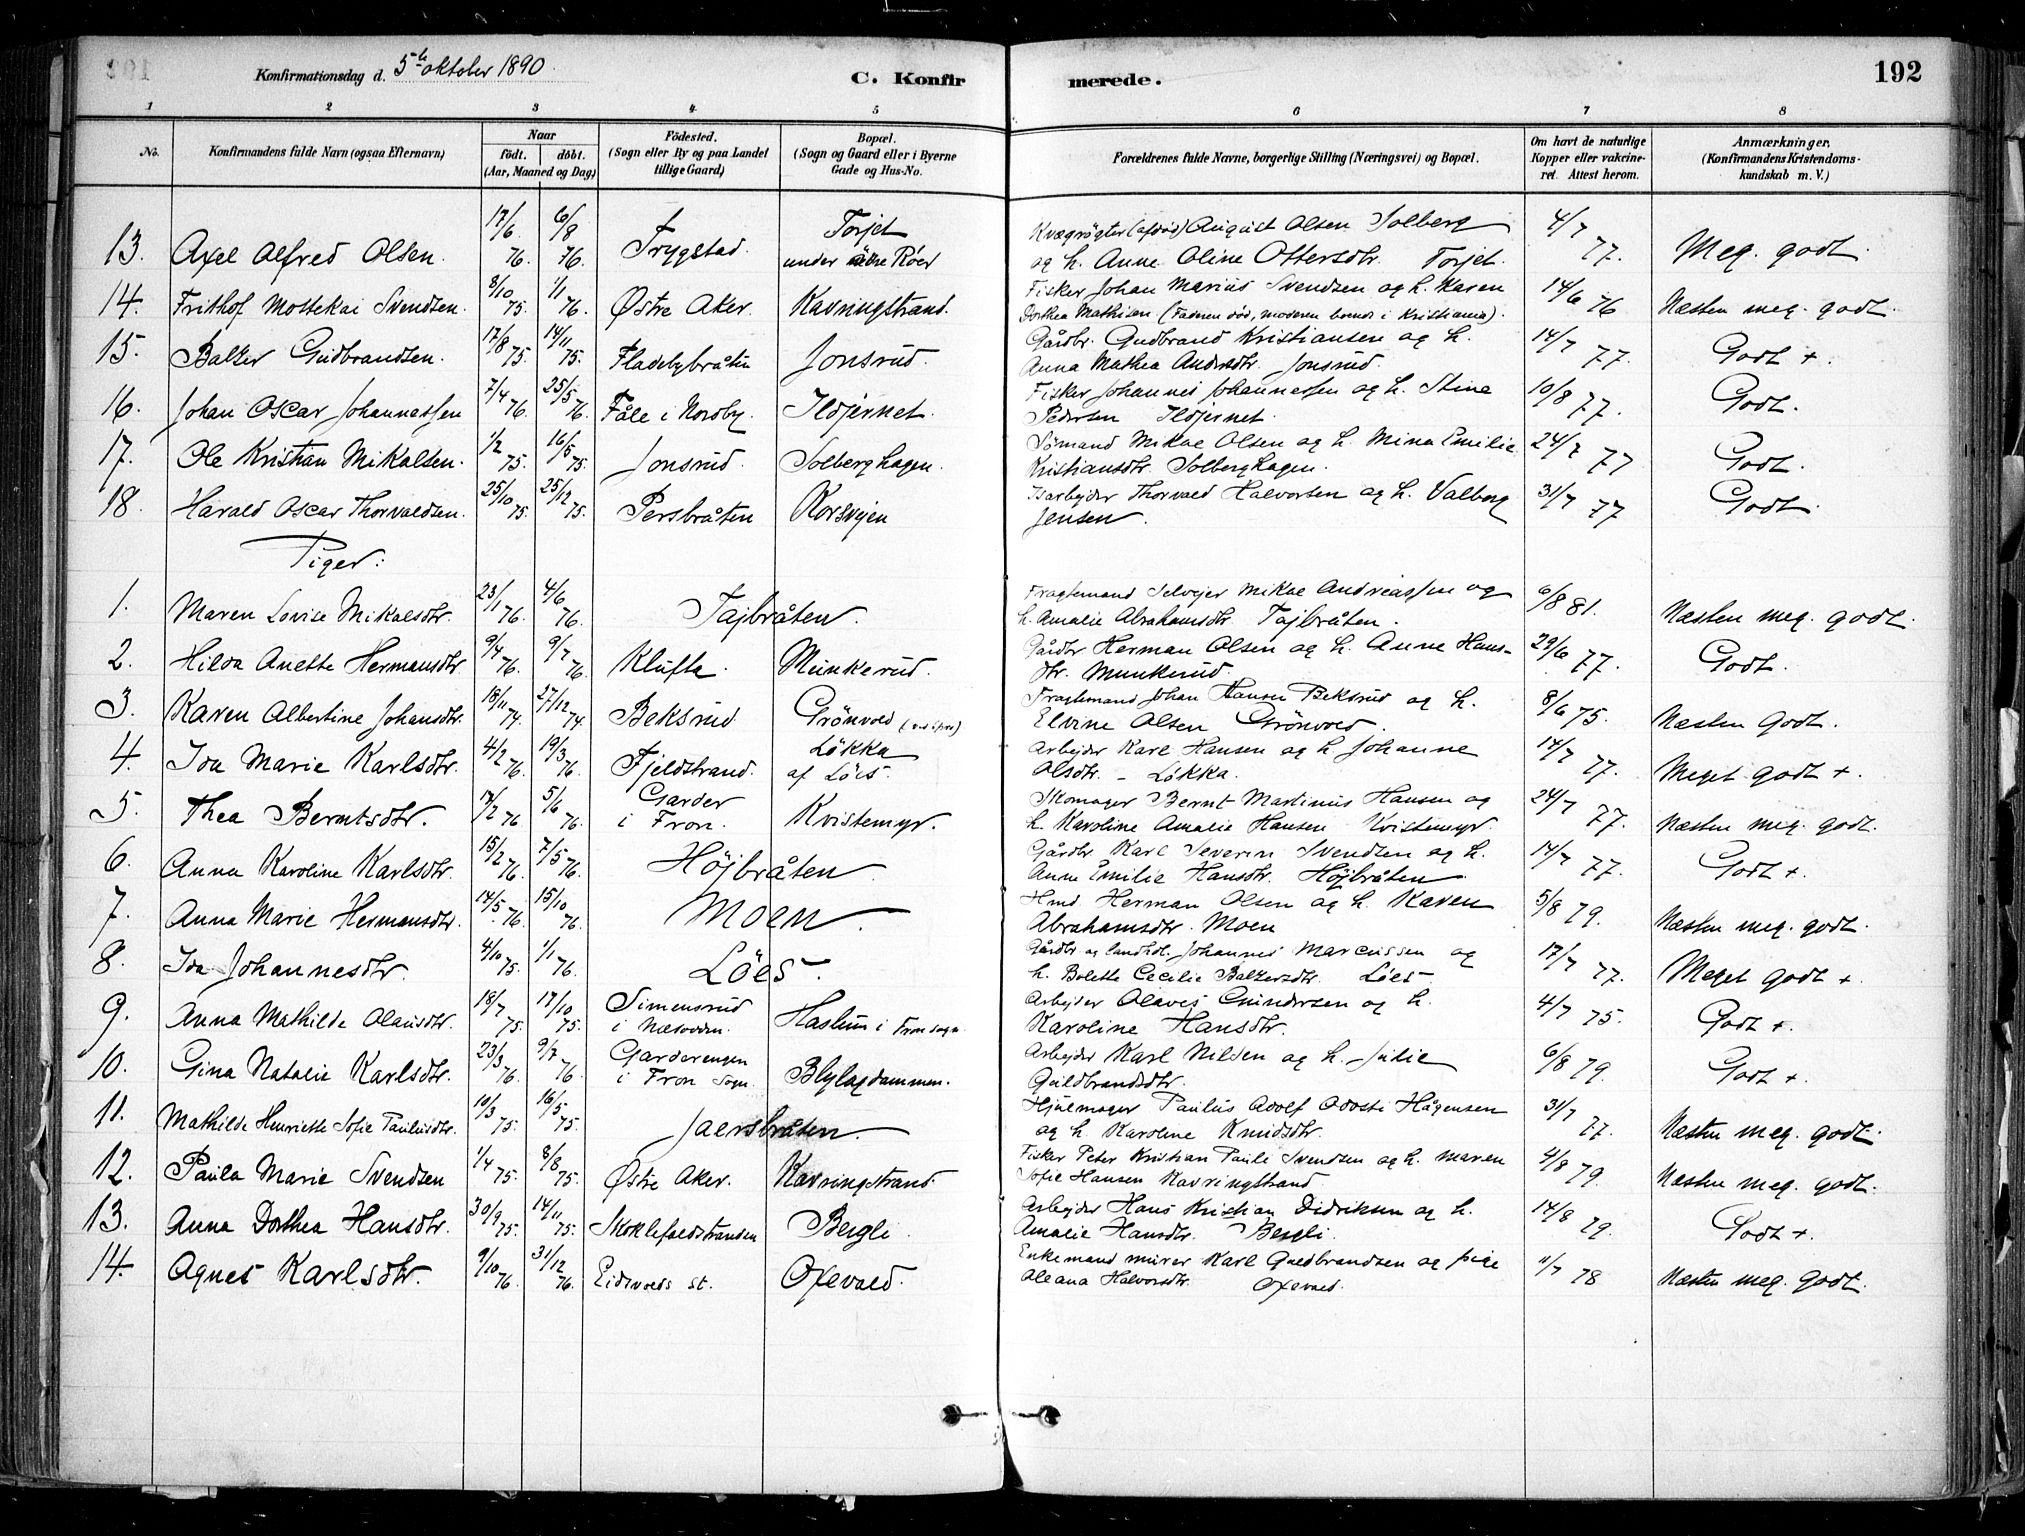 Konfirmationsdag d. 5te oktober 1890 C. Konfir merede. 192
1 2 3 4 5 6 7 8
No. Konfirmandens fulde Navn (ogsaa Efternavn) Naar födt. döbt. (Aar, Maaned og Dag) Födested. (Sogn eller By og paa Landet tillige Gaard) Bopæl. (Sogn og Gaard eller i Byerne Gade og Hus-No. Forældrenes fulde Navne, borgerlige Stilling (Næringsvei) og Bopæl. Om havt de naturlige Kopper eller vakcineret. Attest herom. Anmærkninger. (Konfirmandens Kristendomskundskab m. V.)
13. Axel Alfred Olsen. 17/6 76. 6/8 76. Frygstad. Torjet under Röer Kvægrögter (afdöd) August Olsen Solberg og h. Anne Oline Ottersdtr. Torjet. 4/7 77. Meg. godt.
14. Frithof Mostekai Svendsen. 8/10 75. 1/1 76. Østre Aker. Kavringstrand. Fisker Johan Marius Svendsen og h. Karen Dorthea Mathisen (Faderen död, moderen boende i Kristiania). 14/6 76 Næsten meg. godt.
15. Balzer Gudbrandsen. 17/8 75. 14/11 75. Fladebybråten Jonsrud. Gårdbr. Gudbrand Kristiansen og h. Anna Mathea Andersdtr. Jonsrud. 14/7 77. Godt +.
16. Johan Oscar Johannessen 7/4 76. 25/5 76. Fåle i Nordby. Ildjernet. Fisker Johannes Johannessen og h. Stine Pedersen Ildjernet. 10/8 77. Godt.
17. Ole Kristian Mikalsen. 1/2 75. 16/5 75. Jonsrud. Solberghagen. Sömand Mikal Olsen og h. Mina Emilie Kristiansdtr. Solberghagen. 24/7 77 Godt.
18. Harald Oscar Thorvaldsen. 25/10 75. 25/12 75. Persbråten Korsvejen Isarbejder Thorvald Halvorsen og h. Valborg Jensen. 31/7 77 Godt.
Piger:
1. Maren Lovise Mikalsdtr. 23/1 76. 4/6 76. Tajbråten. Fragtemand Selvejer Mikal Andreassen og h. Amalie Abrahamsdtr. Tajbråten. 6/8 81. Næsten meg. godt.
2. Hilda Anette Hermansdtr 9/4 76. 9/7 76. Klufta. Munkerud. Gårdbr Herman Olsen og h. Anne Hansdtr. Munkerud. 29/6 77. Godt.
3. Karen Albertine Johansdtr. 18/11 74. 27/12 74. Beksrud Grönvold Fragtemand Johan Hansen Beksrud og h. Elvine Olsen Grönvold. 8/6 75. Næsten Godt.
4. Ida Marie Karlsdtr. 4/2 76. 19/3 76. Fjeldstrand. Lökka af Löes. Arbejder Karl Hansen og h. Johanne Olsdtr. - Lökka. 14/7 77. Meget godt +.
5. Thea Berntsdtr. 17/2 76 5/6 76. Garder i Fron. Kvistemyr. Skomager Bernt Martinius Hansen og h. Karoline Amalie Hansen Kvistemyr. 24/7 77. Næsten meg. godt.
6. Anna Karoline Karlsdtr. 15/2 76. 7/5 76. Höjbråten Gårdbr. Karl Severin Svendsen og h. Anne Emilie Hansdtr. Höjbråten 14/7 77. Godt +.
7. Anna Marie Hermansdtr. 14/5 76. 15/10 76. Moen. Hmd. Herman Olsen og h. Karen Abrahamsdtr. Moen 5/8 79. Næsten meg. godt.
8. Ida Johannesdtr. 4/10 75. 1/1 76. Löes. Gårdbr og landhdl. Johannes Marcussen og h. Bolette Cecilie Balzersdtr. Löes 17/7 77. Meget godt +
9. Anna Mathilde Olausdtr. 18/7 75. 17/10 75. Simensrud i Nesodden. Haslum i Fron sogn. Arbejder Olaves Gundersen og h. Karoline Hansdtr. 4/7 75. Godt +.
10. Gina Natalie Karlsdtr. 23/3 76. 9/7 76. Garderengen i Fron Sogn. Blylagdammen. Arbejder Karl Nilsen og h. Julie Guldbrandsdtr. 6/8 79. Godt +.
11. Mathilde Henriette Sofie Paulusdtr. 10/3 75. 16/5 75. Jaersbråten. Hjulmager Paulus Adolf Odosti Hågensen og h Karoline Knudsdtr. 31/7 77. Næsten meg. godt.
12. Paula Marie Svendsen 1/4 75. 8/8 75. Østre Aker. Kavringstrand. Fisker Peter Kristian Pauli Svendsen og h. Maren Sofie Hansen Kavringstrand 4/8 79. Næsten meg. godt.
13. Anna Dorthea Hansdtr. 30/9 75. 14/11 75. Skoklefaldstranden Bergli. Arbejder Hans Kristian Didriksen og h. Amalie Hansdtr. Bergli. 14/8 79. Godt +.
14. Agnes Karlsdtr. 9/10 76. 31/12 76. Eidsvolds st. Oxevald. Enkemand murer Karl Guldbrandsen og pige Oleana Halvorsdtr. Oxevald. 11/7 78 Næsten meg. godt.